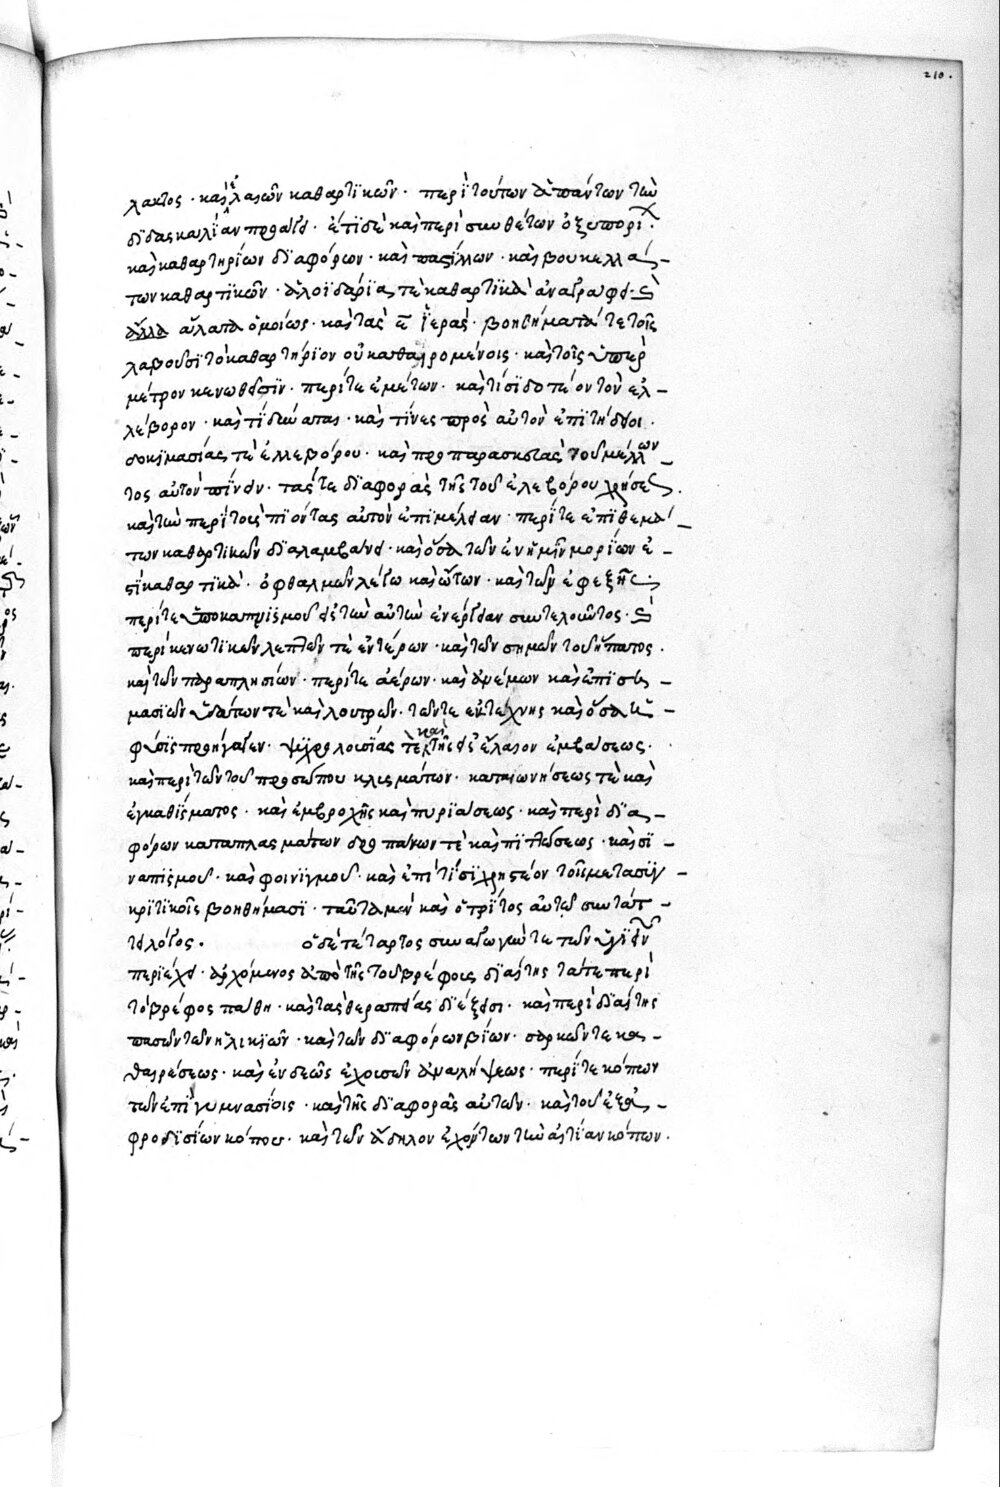 210.
λακτος · καὶ ἐλαιῶν καθαρτικῶν · περὶ τούτων ἁπάντων τὴν
διδασκαλίαν ποιεῖται · ἔτι δὲ καὶ περὶ συνθέτων ὀξυπορί
καὶ καθαρτηρίων διαφόρων · καὶ παστίλλων · καὶ βουκελλα
των καθαρτικῶν · ἁλοιδάριας τὲ καθαρτικὰ ἀναγράφει · καὶ
ἄλλα πολλὰ ὁμοίως · καὶ τὰς ἱεράς · βοηθήματά τε τοῖς
λαβοῦσι τὸ καθαρτήριον οὐ καθαιρομένοις · καὶ τοῖς ὑπὲρ
μέτρον κενωθεῖσιν · περί τε ἐμέτων · καὶ τίσι δοτέον τὸν ἐλ
λέβορον · καὶ τί δεῖ · καὶ τίνες πρὸς αὐτὸν ἐπιτήδειοι ·
δοκιμασίας τὲ ἐλλεβόρου · καὶ προπαρασκευὰς τοῦ μέλλον
τος αὐτὸν πίνειν · τάς τε διαφορὰς τῆς τοῦ ἐλεβόρου χρήσεως ·
καὶ τὴν περὶ τοὺς πιόντας αὐτὸν ἐπιμέλειαν · περί τε ἐπιθεμά
των καθαρτικῶν διαλαμβάνει · καὶ ὅσα τῶν ἐν ἡμῖν μορίων ἐ
στὶ καθαρτικά · ὀφθαλμῶν λέγω καὶ ὤτων · καὶ τῶν ἐφεξῆς ·
περί τε ὑποκαπνισμοῦ εἰς τὴν αὐτὴν ἐνέργειαν συντελοῦντος · καὶ
περὶ κενωτικῶν λεπτῶν τὲ ἐντέρων · καὶ τῶν σιμῶν τοῦ ἥπατος ·
καὶ τῶν παραπλησίων · περί τε ἀέρων · καὶ ἀνέμων καὶ ἐπιση
μασιῶν ὑδάτων τὲ καὶ λουτρῶν · τῶν τε ἐν τέχνης καὶ ὅσα ἡ
φύσις προήγαγεν · ψυχρολουσίας τὲ καὶ τῆς εἰς ἔλαιον ἐμβάσεως ·
καὶ περὶ τῶν τοῦ προσώπου κλισμάτων · καταιονήσεως τὲ καὶ
ἐγκαθίσματος · καὶ ἐμβροχῆς καὶ πυριάσεως · καὶ περὶ δια
φόρων καταπλασμάτων δροπάκων τὲ καὶ πιττώσεως · καὶ σι
ναπισμοῦ · καὶ φοινιγμοῦ · καὶ ἐπὶ τίσι χρηστέον τοῖς μετασυγ
κριτικοῖς βοηθήμασι · ταῦτα μὲν καὶ ὁ τρίτος αὐτῶ συντάτ
τει λόγος · ὁ δὲ τέταρτος συναγωγὴν τε τῶν ὑγιεινῶν
περιέχει · ἀρχόμενος ἀπὸ τῆς τοῦ βρέφους διαίτης τά τε περὶ
τὸ βρέφος πάθη · καὶ τὰς θεραπείας διέξεισι · καὶ περὶ διαίτης
πασῶν τῶν ἡλικιῶν · καὶ τῶν διαφόρων βίων · σαρκῶν τε κα
θαιρέσεως · καὶ ἐνδεῶς ἐχουσῶν ἀναλήψεως · περί τε κόπων
τῶν ἐπὶ γυμνασίοις · καὶ τῆς διαφορᾶς αὐτῶν · καὶ τοῦ ἐξ ἀ
φροδισίων κόπου · καὶ τῶν ἄδηλον ἐχόντων τὴν αἰτίαν κόπων ·